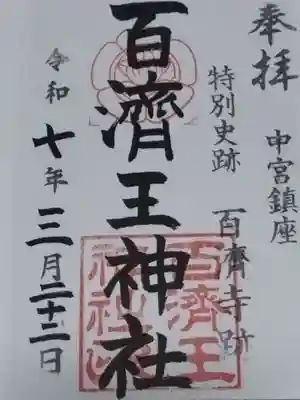 奉拝
中宮鎮座
特別史跡
百濟寺跡
百濟王神社
令和七年三月二十二日
百濟王神社印